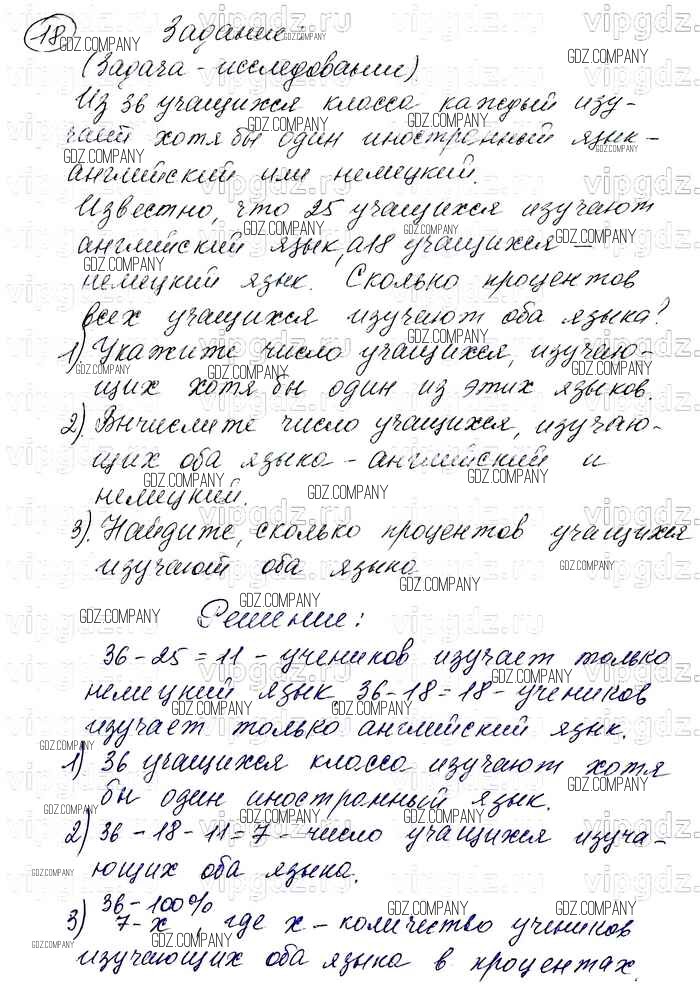 18 Задание:
(Задача - исследование).
Из 36 учащихся класса каждый изу-
чаий хотя бы один иностранный язык -
английский или немецкий.
Известно, что 25 учащихся изучают
английский язык, а 18 учащихся -
немецкий язык. Сколько процентов
всех учащихся изучают оба языка?
1) Укажите число учащихся, изучаю-
щих хотя бы один из этих языков.
2). Вычислите число учащихся, изучаю-
щих оба языка - английский и
немецкий.
3). Найдите, сколько процентов учащихся
изучают оба языка
Решение:
36-25=11 - учеников изучает только
немецкий язык, 36-18=18 - учеников
изучает только английский язык.
1) 36 учащихся класса изучают хотя
бы один иностранный язык.
2) 36-18-11=7 - число учащихся изуча-
ющих оба языка.
3) 36-100%
7-х , где х - количество учеников
изучающих оба языка в процентах.